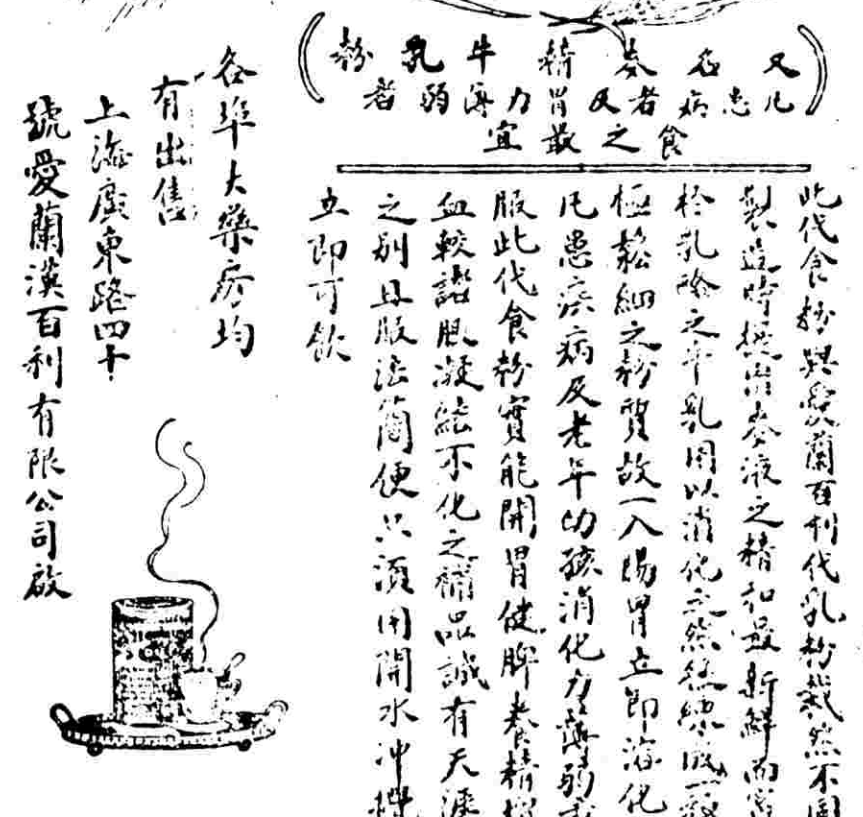 又名麥精牛乳粉
凡患病者及胃力薄弱者
食之最宜
此代食粉與愛蘭百利代乳粉截然不同
製造時提出麥液之精和最新鮮而富
於乳酪之牛乳用以消化之然後煉成一種
極鬆細之粉質故一入腸胃立即溶化
凡患疾病及老年幼孩消化力薄弱者
服此代食粉實能開胃健脾養精增
血較諸服凝能不化之補品誠有天涯
之別且服法簡便只須用開水冲攪
立即可飲
各埠大藥房均
有出售
上海廣東路四十
號愛蘭漢百利有限公司啟